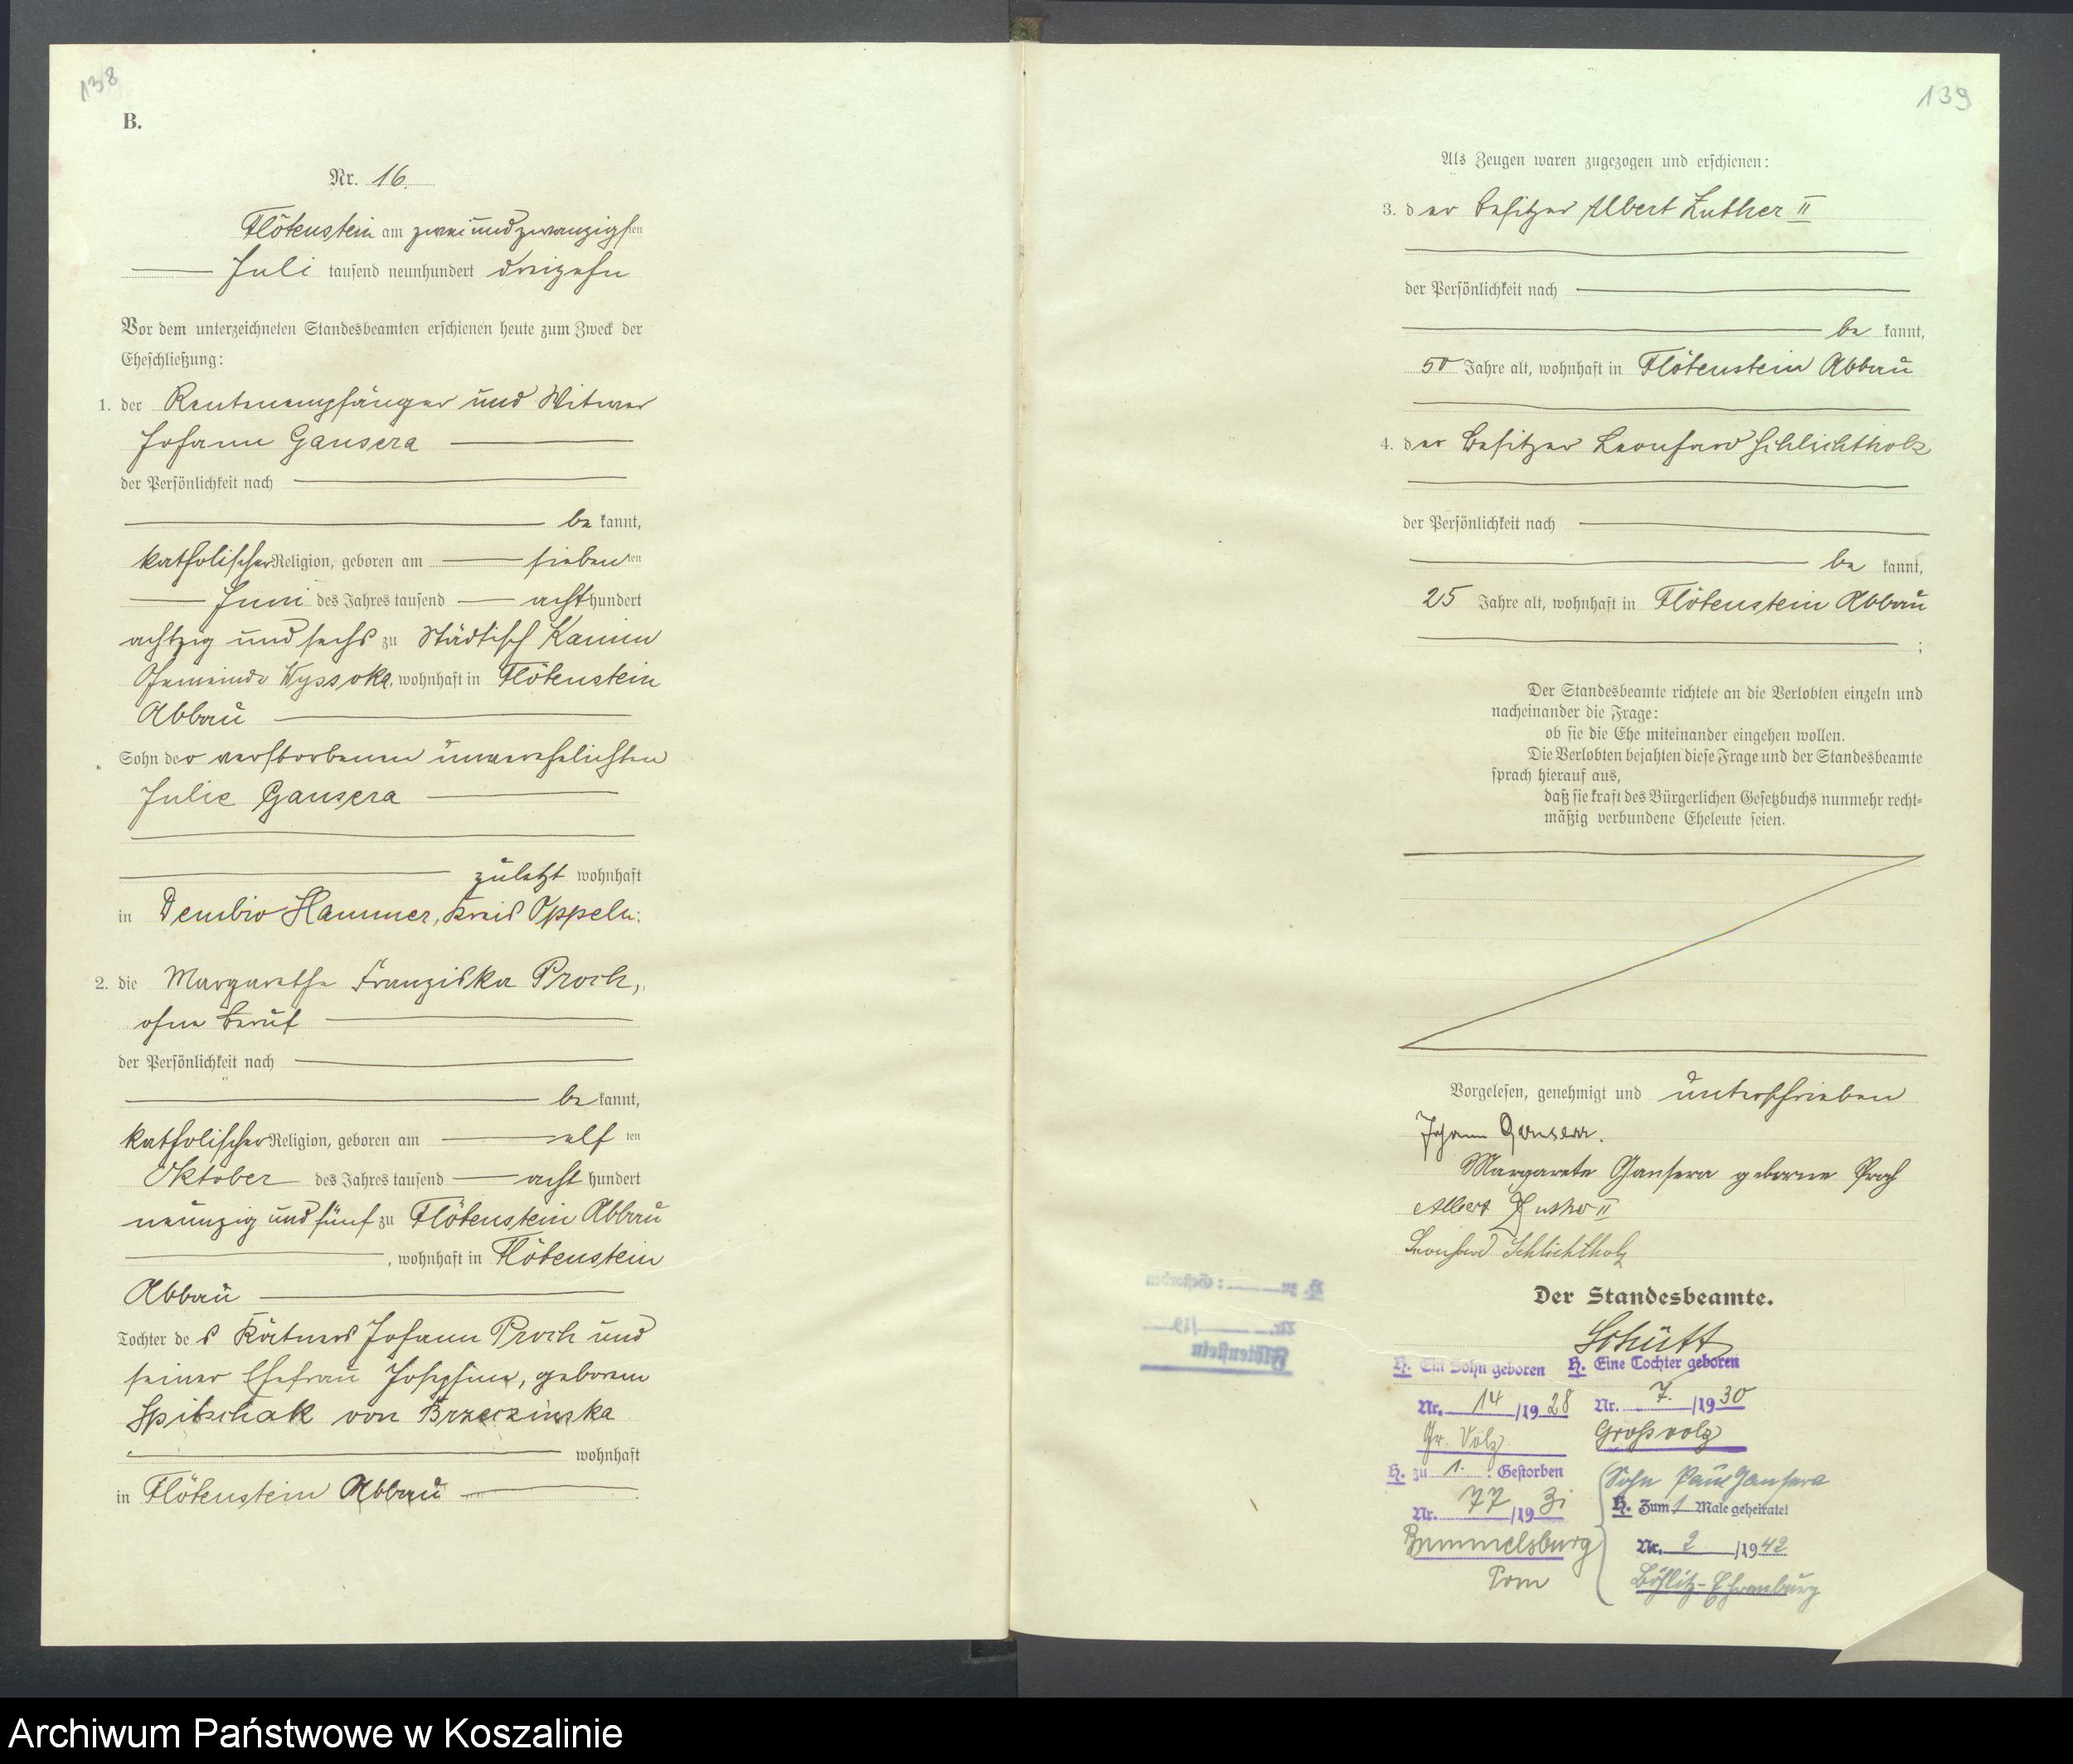 138
B.
Nr. 16.
Flötenstein am zweiundzwanzigsten
Juli tausend neunhundert dreizehn
Vor dem unterzeichneten Standesbeamten erschienen heute zum Zweck der
Eheschließung:
1. der Rentenempfänger und Witwer
Johann Gansera
der Persönlichkeit nach
be kannt,
katholischer Religion, geboren am sieben ten
Juni des Jahres tausend acht hundert
achtzig und sechs zu Städtisch Kamin
Gemeinde Wyssoka, wohnhaft in Flötenstein
Abbau
Sohn der verstorbenen unverehelichten
Julie Gansera
zuletzt wohnhaft
in Dembio Hammer, Kreis Oppeln;
2. die Margarethe Franziska Proch,
ohne Beruf
der Persönlichkeit nach
be kannt,
katholischer Religion, geboren am elf ten
Oktober des Jahres tausend acht hundert
neunzig und fünf zu Flötenstein Abbau
, wohnhaft in Flötenstein
Abbau
Tochter des Kätners Johann Proch und
seiner Ehefrau Josephine, geborene
Spitschak von Brzezinska
wohnhaft
in Flötenstein Abbau
139
Als Zeugen waren zugezogen und erschienen:
3. der Besitzer Albert Luther II
der Persönlichkeit nach
be kannt,
50 Jahre alt, wohnhaft in Flötenstein Abbau
4. der Besitzer Leonhard Schlichtholz
der Persönlichkeit nach
be kannt,
25 Jahre alt, wohnhaft in Flötenstein Abbau
;
Der Standesbeamte richtete an die Verlobten einzeln und
nacheinander die Frage:
ob sie die Ehe miteinander eingehen wollen.
Die Verlobten bejahten diese Frage und der Standesbeamte
sprach hierauf aus,
daß sie kraft des Bürgerlichen Gesetzbuchs nunmehr recht-
mäßig verbundene Eheleute seien.
Vorgelesen, genehmigt und unterschrieben
Johann Gansera.
Margarete Gansera geborne Proch
Albert Luther II
Leonhard Schlichtholz
Der Standesbeamte.
Schütt
H. Ein Sohn geboren
Nr. 14 /19 28
Gr. Volz
H. Eine Tochter geboren
Nr. 7. /19 30
Großvolz
H. zu 1. : Gestorben
Nr. 77 /19 31
Rummelsburg
Pom
Sohn Paul Gansera
H. Zum 1 Male geheiratet
Nr. 2 /19 42
Böhlitz-Ehrenburg
H. zu : Gestorben
Nr. /19
Flötenstein
Archiwum Państwowe w Koszalinie